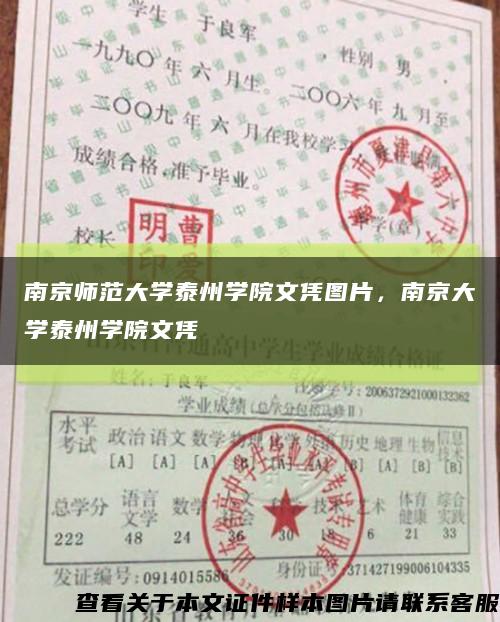 学生 于良军 ，性别 男 ．
一九九〇 年 六 月生。 二〇〇六 年 九 月至
二〇〇九 年 六 月在我校学习
成绩合格，准予毕业。
德州市夏津县第六中学
校长
曹爱明印
学(章)
南京师范大学泰州学院文凭图片，南京大
学泰州学院文凭
山东省普通高中学生学业成绩合格证
姓名：于良军 学号：2006372921000132362
学业成绩（总学分包括必修Ⅱ）
水平考试 政治 语文 数学 物理 化学 外语 历史 地理 生物 信息技术
[A] [A] [A] [B] [A] [B] [B]
总学分 语言文学 数学 科学 技术 艺术 体育健康 综合实践
222 48 24 36 30 18 6 21 33
发证编号：0914015586 身份证号：371427199006104335
查看关于本文证件样本图片请联系客服